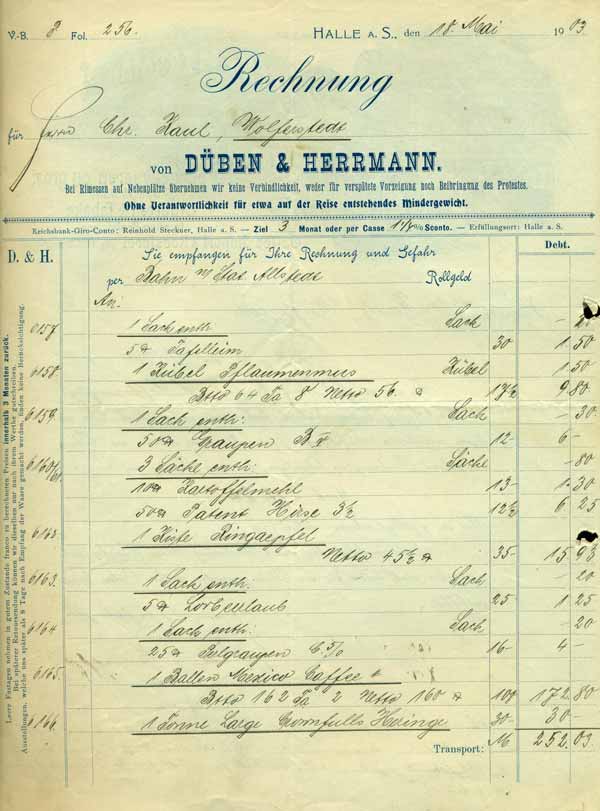 V.-B. 8 Fol. 256. HALLE A. S., den 18. Mai 1903.
Rechnung
für Herrn Chr. Kaul, Wolferstedt
von DÜBEN & HERRMANN.
Bei Rimessen auf Nebenplätze übernehmen wir keine Verbindlichkeit, weder für verspätete Vorzeigung noch Beibringung des Protestes.
Ohne Verantwortlichkeit für etwa auf der Reise entstehendes Mindergewicht.
Reichsbank-Giro-Conto: Reinhold Steckner, Halle a. S. — Ziel 3 Monat oder per Casse 1 1/2 % Sconto. — Erfüllungsort: Halle a. S.
D. & H. Sie empfangen für Ihre Rechnung und Gefahr Debt.
per Bahn Stat. Allstedt Rollgeld
An:
6157 1 Sach enth. Sach
5 ℔ Tafelleim 30 1.50
6158. 1 Kübel Pflaumenmus Kübel 1.50
Btto 64 Ta 8 Netto 56. ℔ 17½ 9 80
6159. 1 Sach enth: Sach -30
50 ℔ Graupen 12- 6-
6160/61 3 Säche enth: Säche -80
10 ℔ Kartoffelmehl 13- 1.30
50 ℔ Patent Hirse 3½ 12½ 6 25
6162. 1 Kiste Ringaepfel
Netto 45½ ℔ 35- 15 93
6163. 1 Sach enth. Sach -20
5 ℔ Lorbeerlaub 25 1 25
6164 1 Sach enth: Sach -20
25 ℔ Perlgraupen 16- 4-
6165. 1 Ballen Mexico Caffee
Btto 162 Ta 2 Netto 160 ℔ 108 172.80
6166. 1 Tonne Large Heringe 30- 30-
Transport: M. 252.03.
Leere Fastagen nehmen in gutem Zustande franco zu berechneten Preisen innerhalb 3 Monaten zurück.
Bei späterer Retoursendung können wir dieselben nur nach ihrem Werthe gutschreiben.
Ausstellungen, welche uns später als 8 Tage nach Empfang der Waare gemacht werden, finden keine Berücksichtigung.